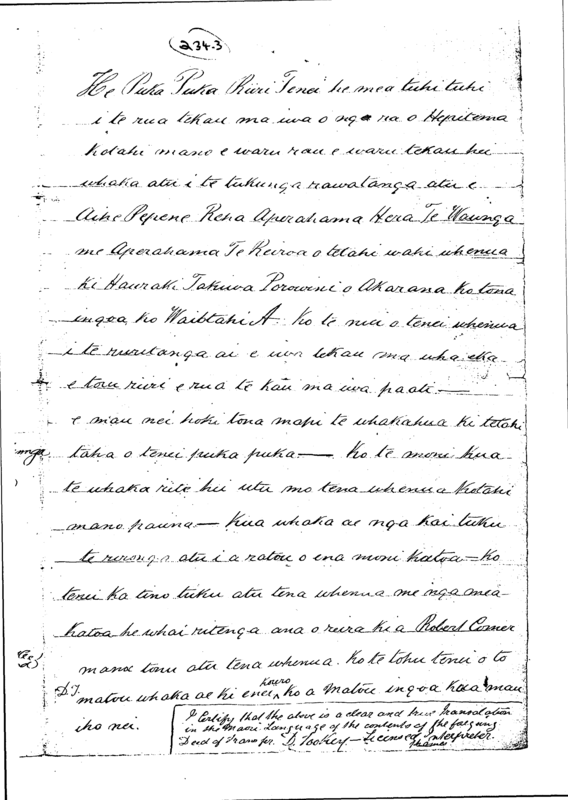 234.3
He Puka Puka Riiri Tenei he mea tuhi tuhi
i te rua tekau ma iwa o nga ra o Hepitema
kotahi mano e waru rau e waru tekau hei
whaka atu i te tukunga rawatanga atu e
Aihe Pepene Reha Aperahama Hera Te Waunga
me Aperahama Te Reiroa o tetahi wahi whenua
ki Hauraki Takuwa Porowini o Akarana Ko tona
ingoa ko A Ko te nui o tenei whenua
i te ruritanga ai e iwa tekau ma wha eka
e toru ruri e rua te kau ma iwa paati —
e mau nei hoki tona mapi te whakahua ki tetahi
nga taha o tenei puka puka — Ko te moni kua
te whaka rite hei utu mo tena whenua Kotahi
mano pauna — Kua whaka ae nga kai tuku
te atu i a ratou o ena moni katoa — Ko
tenei ka tino tuku atu tena whenua me nga mea
katoa he whai ritenga ana o reira ki a Robert Comer
mana tonu atu tena whenua. Ko te tohu tenei o to
D.T. matou whaka ae ki enei korero Ko a Matou ingoa kua mau
iho nei.
I Certify that the above is a clear and true Translation
in the Maori Language of the contents of the
Deed of Transfer. D. Tookey — Licensed Interpreter.
Thames